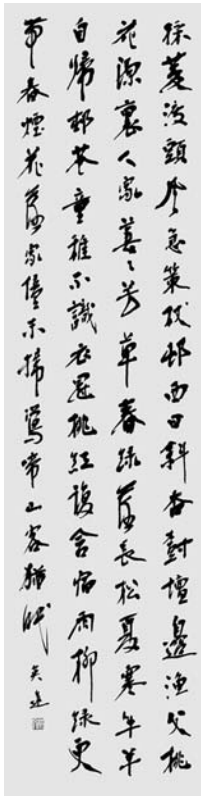 採菱渡頭風急策杖邨西日斜杏樹壇邊漁父桃
花源裏人家萋〻芳草春綠落長松夏寒牛羊
自歸邨巷童稚不識衣冠桃紅復含宿雨柳綠更
帶春煙花落家僮未掃鶯啼山客猶眠